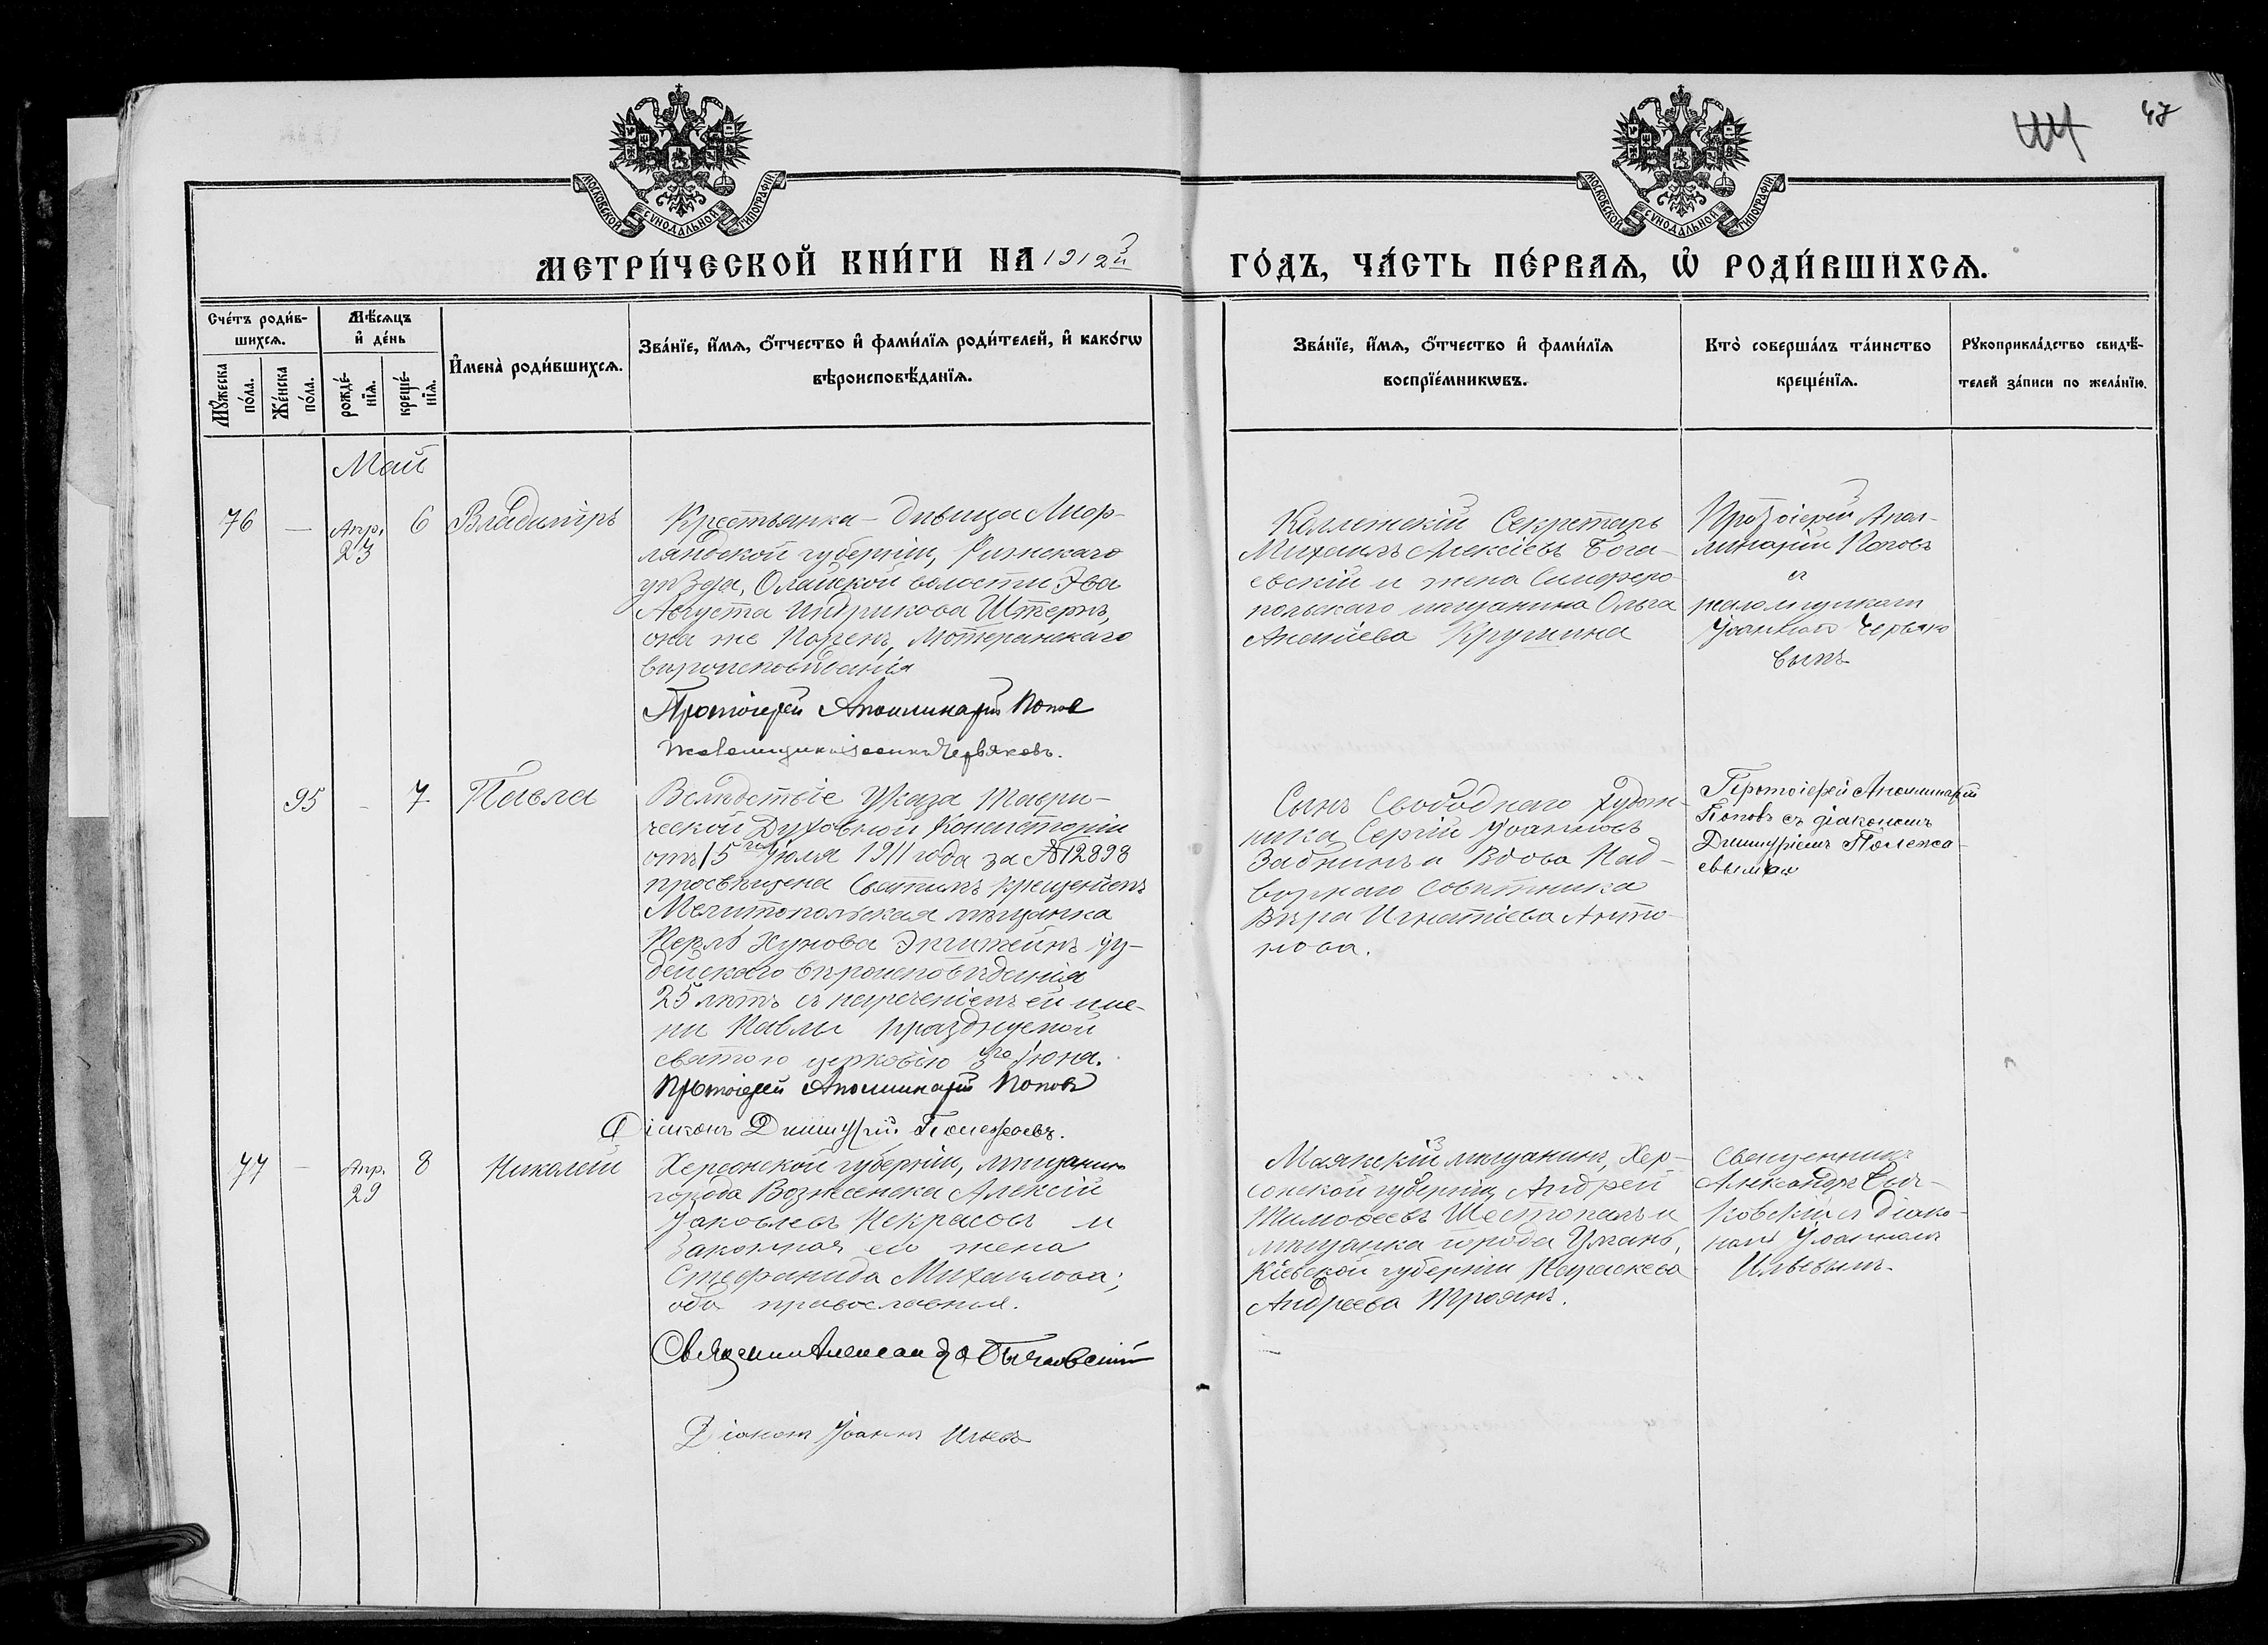 47
МОСКОВСКОЙ СУНОДАЛЬНОЙ ТИПОГРАФІИ
МОСКОВСКОЙ СУНОДАЛЬНОЙ ТИПОГРАФІИ
МЕТРИ́ЧЕСКОЙ КНИ́ГИ НА 1912й
ГО́ДЪ, ЧА́СТЬ ПЕ́РВАѦ, Ѡ҆ РОДИ́ВШИХСѦ.
Сче́тъ роди́в-
шихсѧ.
Мꙋ́жеска по́ла.
Же́нска по́ла.
Мѣ́сѧцъ
и҆ де́нь
рожде́-
нїѧ.
креще́-
нїѧ.
И҆мена̀ роди́вшихсѧ.
Зва́нїе, и҆́мѧ, ѻ҆́тчество и҆ фами́лїѧ роди́телей, и҆ како́гѡ
вѣроисповѣ́данїѧ.
Зва́нїе, и҆́мѧ, ѻ҆́тчество и҆ фами́лїѧ
воспрїе́мникѡвъ.
Кто̀ соверша́лъ та́инство
креще́нїѧ.
Рꙋкоприкла́дство свидѣ́-
телей за́писи по жела́нїю.
Май
76
—
Апр.
23
6
Владиміръ
Крестьянка - дѣвица Лиф-
ляндской губерніи, Рижскаго
уѣзда, Олайской волости Эва
Августа Индрикова Штернъ,
она же
Лютеранскаго
вѣроисповѣданія
Протоіерей Аполлинарій Попов
Псаломщикъ Іоаннъ Червяковъ.
Коллежскій Секретарь
Михаилъ Алексіевъ Бога-
евскій и жена Симферо-
польскаго мѣщанина Ольга
Ананіева
Протоіерей Апол-
линарій Поповъ
съ
псаломщикомъ
Іоанномъ Червяко
вымъ
95
-
7
Павла
Вслѣдствіе Указа Таври-
ческой Духовной Консисторіи
отъ 15го Іюля 1911 года за № 12898
просвѣщена Святымъ крещеніемъ
Мелитопольская мѣщанка
Перль Хунова Эпштейнъ іу-
дейскаго вѣроисповѣданія
25 лѣтъ съ нареченіемъ ей име-
ни Павлы празднуемой
святою церковію 3го Іюня.
Протоіерей Аполлинарій Поповъ
Діаконъ Димитрій Полежаевъ.
Сынъ Свободнаго худож-
ника Сергій Іоанновъ
Забнинъ и Вдова Над-
ворнаго Совѣтника
Вѣра Игнатіева Анто-
нова.
Протоіерей Аполлинарій
Поповъ съ діакономъ
Димитріемъ Полежа-
евымъ
77
—
Апр.
29
8
Николай
Херсонской губерніи, мѣщанинъ
города Вознесенска Алексій
Іаковлевъ Некрасовъ и
законная его жена
Стефанида Михаилова;
оба православные.
Священникъ Александръ Бычковскій
Діаконъ Іоаннъ Ильевъ
Маякскій мѣщанинъ, Хер-
сонской губерніи Андрей
Тимофеевъ Шестопалъ и
мѣщанка города Умань,
Кіевской губерніи Параскева
Андреева Троянъ.
Священникъ
Александръ Быч-
ковскій съ діако-
номъ Іоанномъ
Ильевымъ